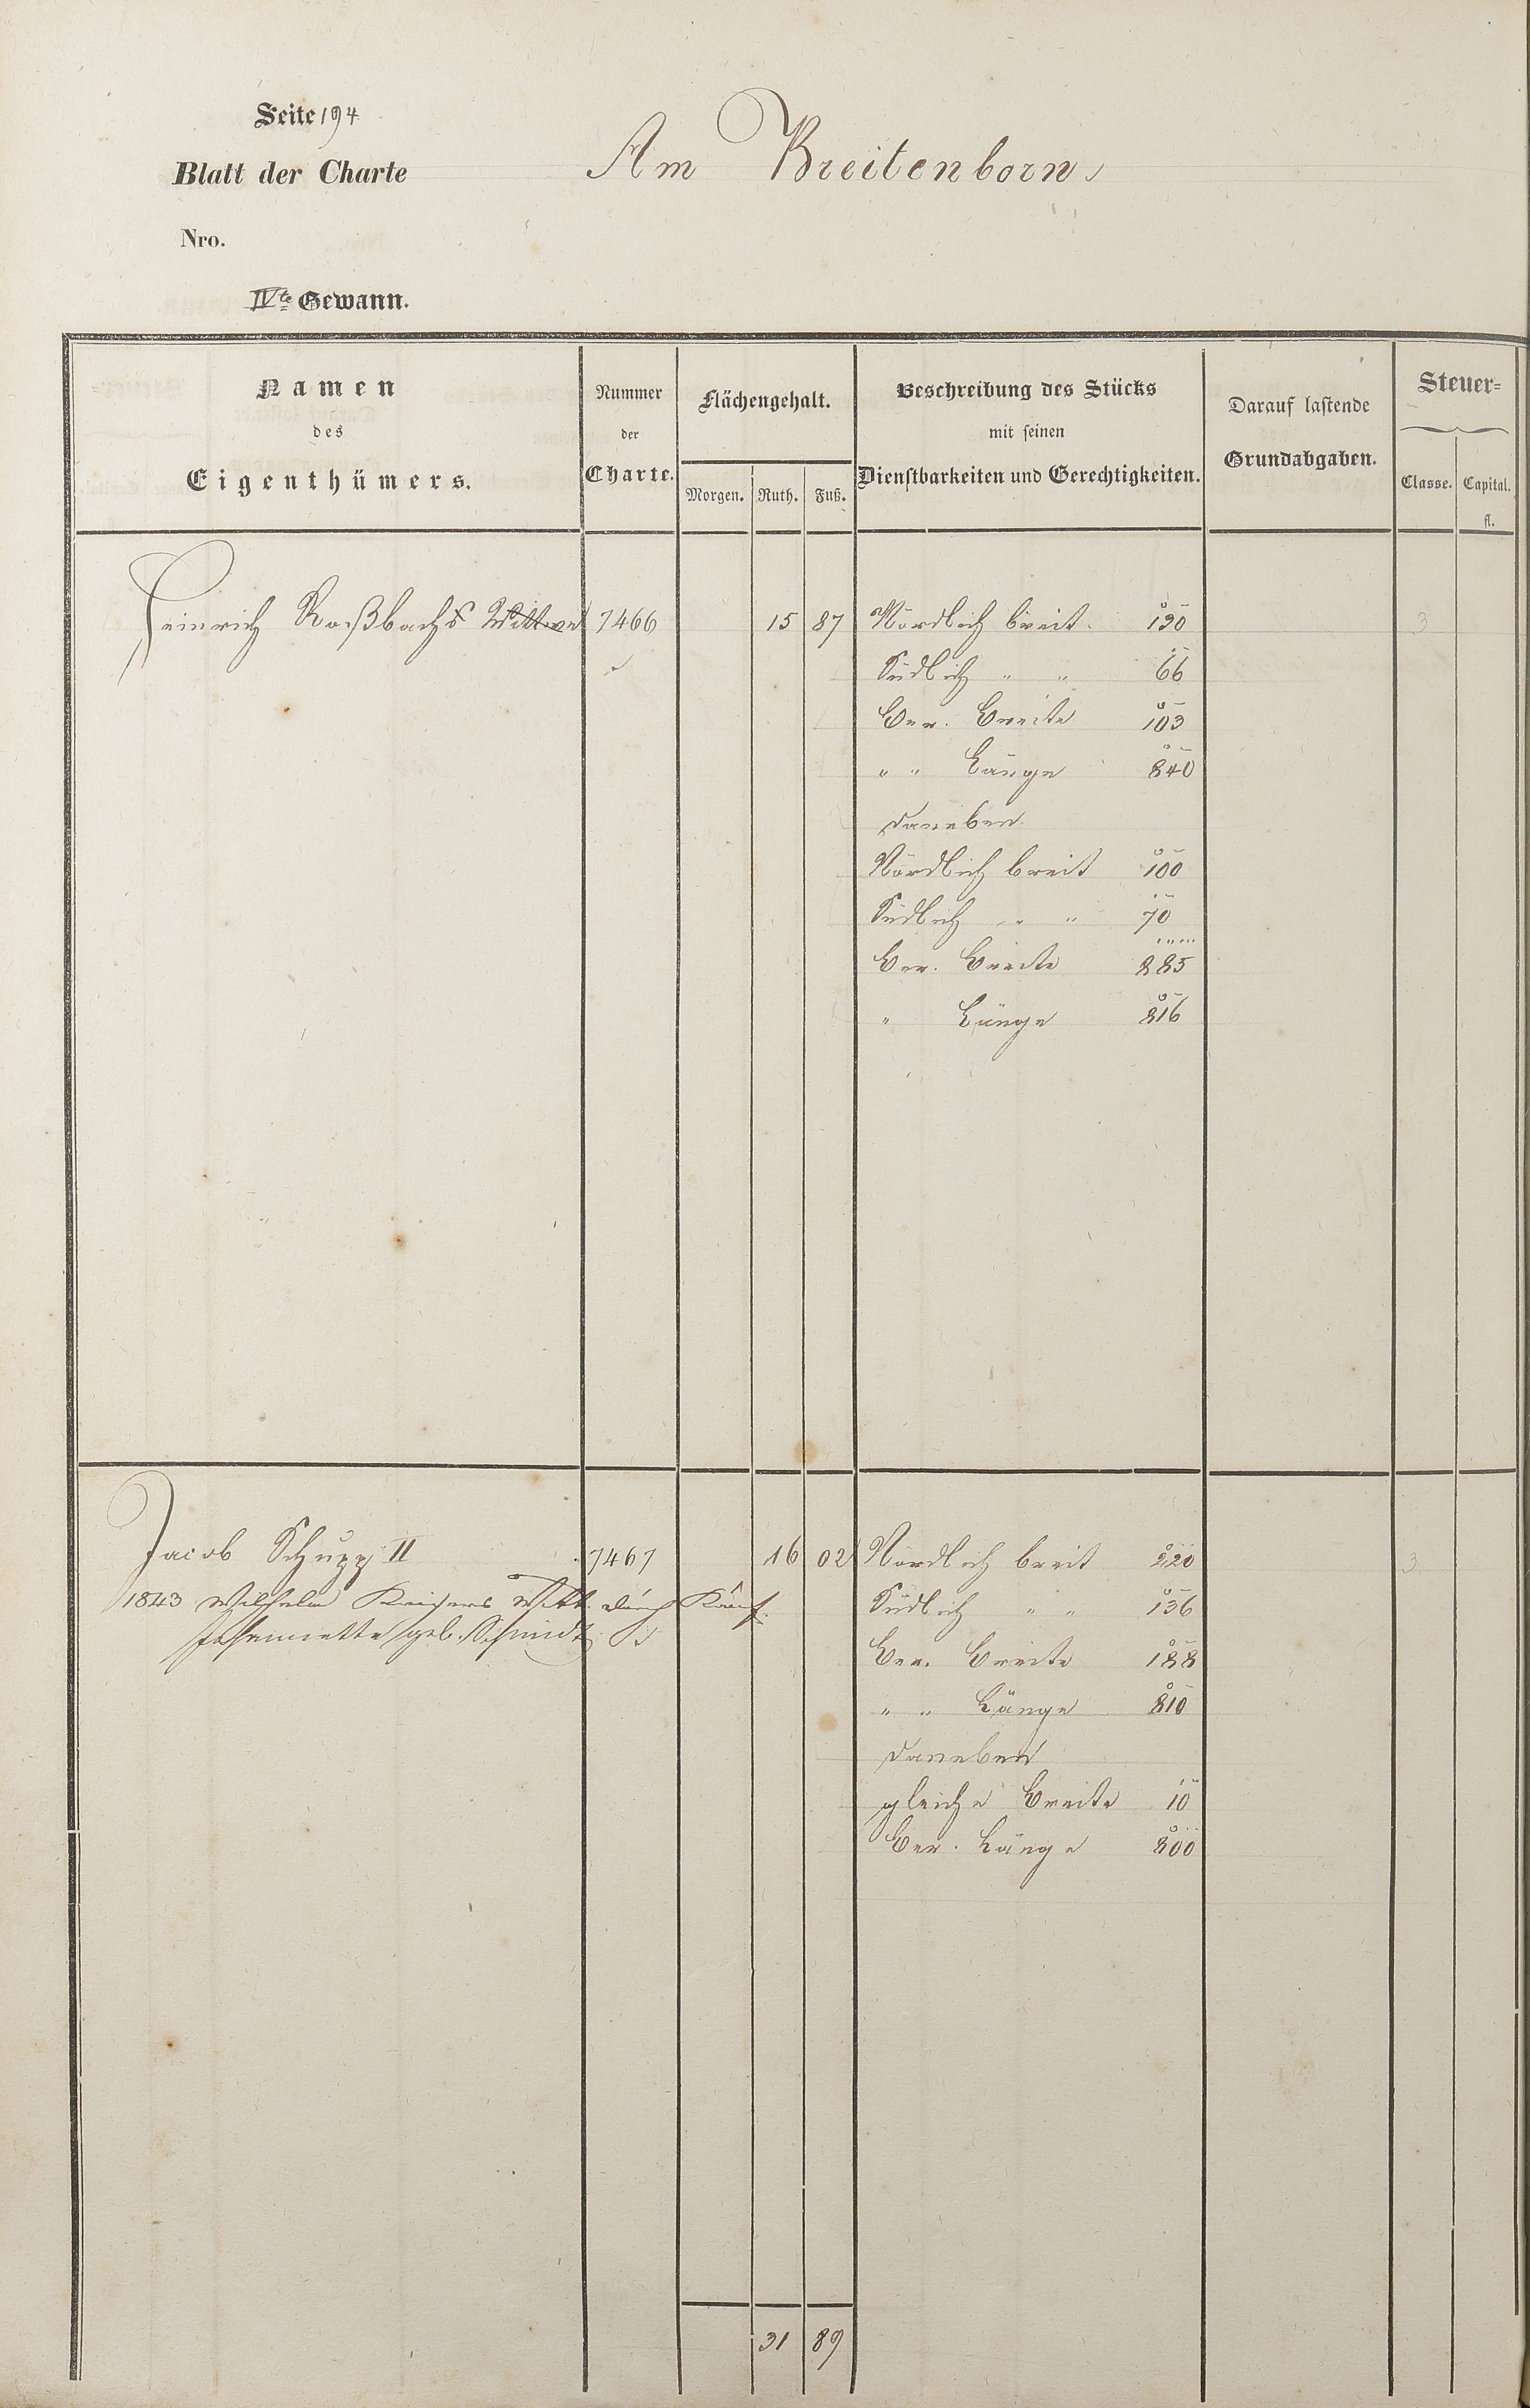 Seite 194
Blatt der Charte
Am Breitenborn
Nro.
IVte Gewann.
Namen
des
Eigenthümers.
Nummer
der
Charte.
Flächengehalt.
Morgen. Ruth. Fuß.
Beschreibung des Stücks
mit seinen
Dienstbarkeiten und Gerechtigkeiten.
Darauf lastende
Grundabgaben.
Steuer=
Classe. Capital.
fl.
Heinrich Roßbachs Wittwe 7466 15 87 Nördlich breit 190 3
Südlich " " 66
Ber. Breite 103
" " Länge 840
daneben
Nördlich breit 100
Südlich " " 70
Ber. Breite 885
" Länge 816
Jacob Schupp II 7467 16 02 Nördlich breit 220 3
1843 Wilhelm Kaisers Witt. durch Kauf. Südlich " " 156
geb. Schmidt
Ber. Breite 188
" " Länge 810
daneben
gleiche Breite 10
Ber. Länge 800
31 89